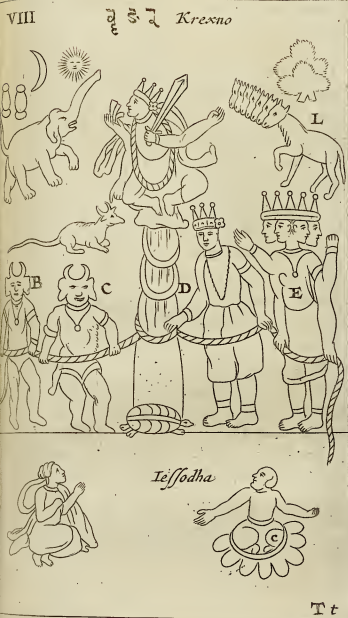 VIII Krexno
L
B
C
D
E
Ieſſodha
C
T t